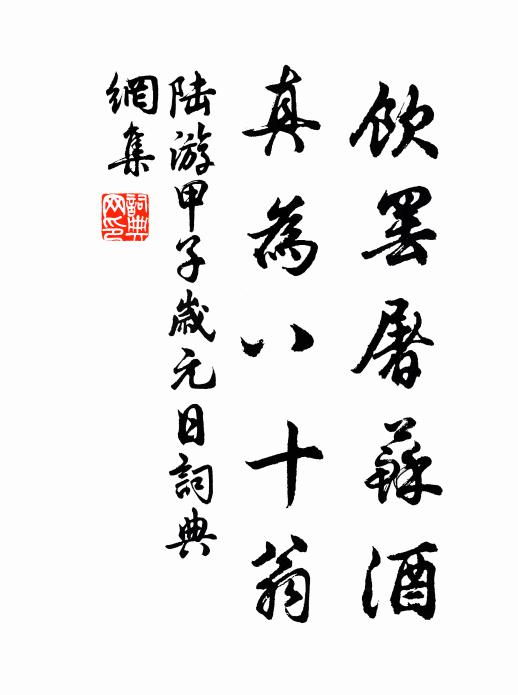 飲罷屠蘇酒
真為八十翁
陸游甲子歲元日詞典
網集
詞典网印